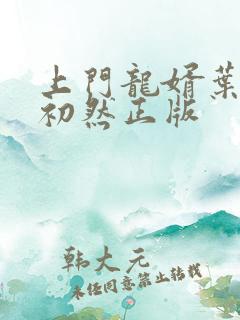 上門龍婿葉
初然正版
韩大元
未经同意禁止转载